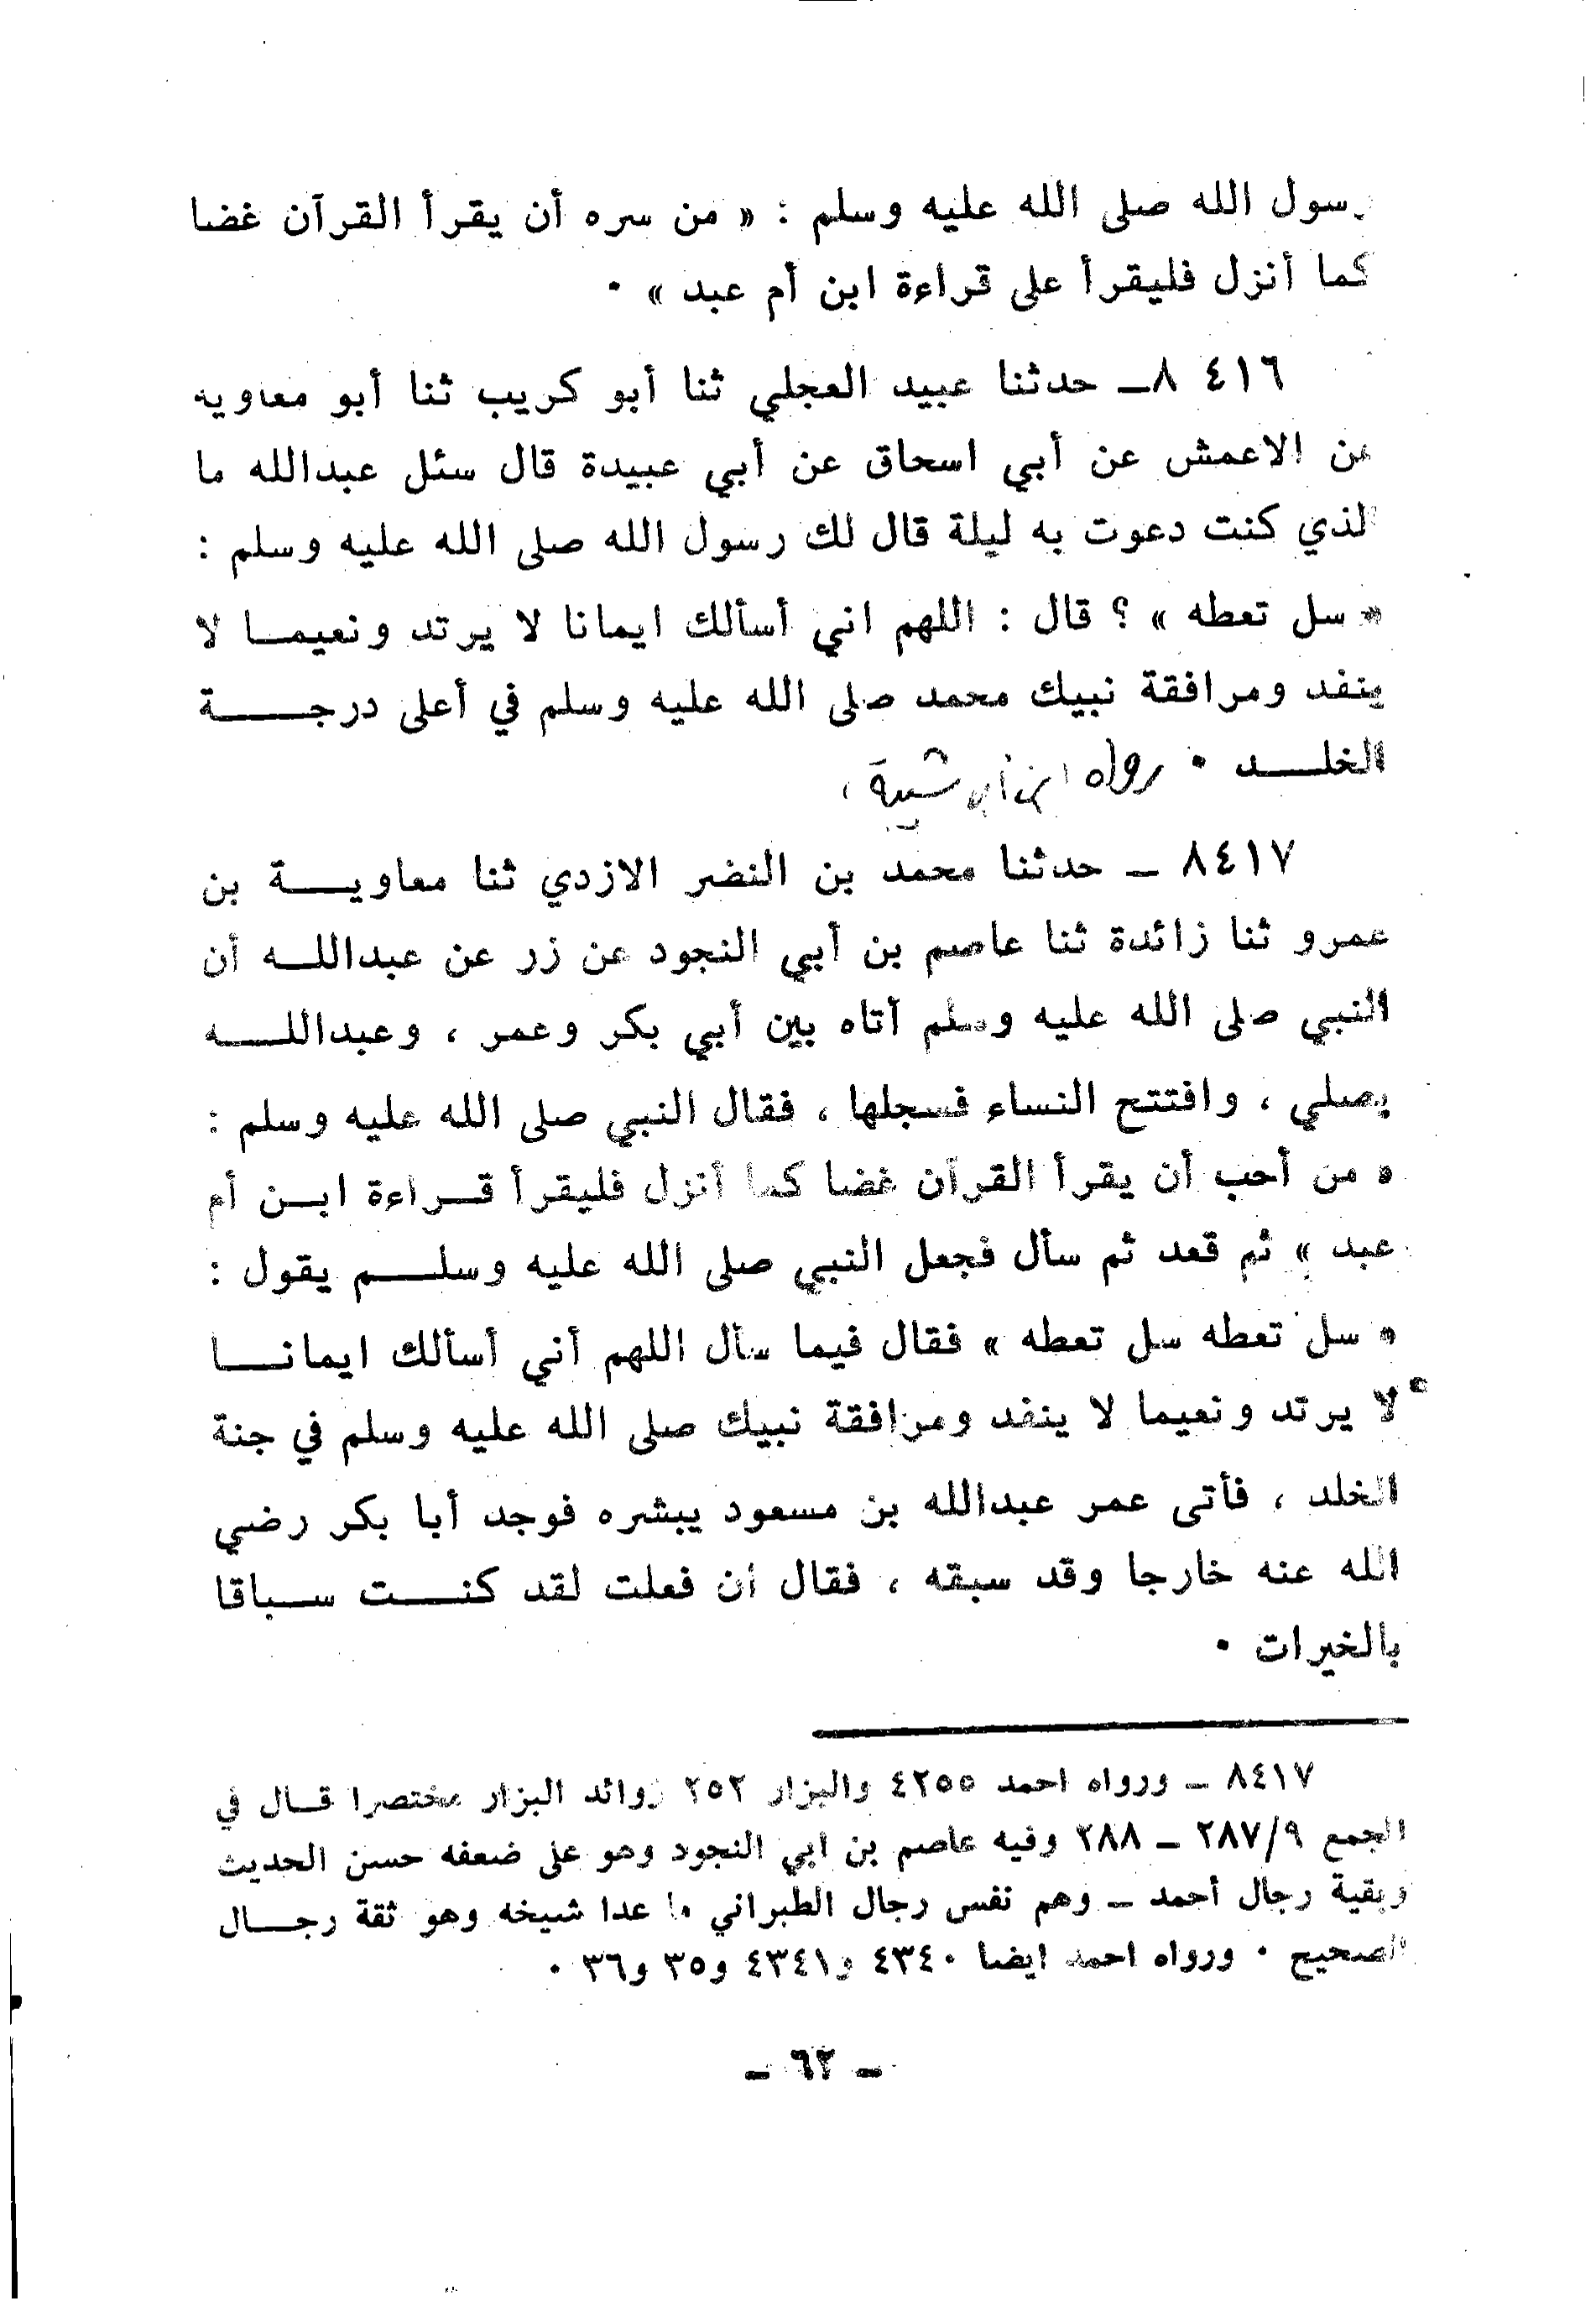 رسول الله صلى الله عليه وسلم : « من سره أن يقرأ القرآن غضا
كما أنزل فليقرأ على قراءة ابن أم عبد » ٠
٨٤١٦ ــ حدثنا عبيد العجلي ثنا أبو كريب ثنا أبو معاويه
عن الاعمش عن أبي اسحاق عن أبي عبيدة قال سئل عبدالله ما
الذي كنت دعوت به ليلة قال لك رسول الله صلى الله عليه وسلم :
« سل تعطه » ؟ قال : اللهم اني أسألك ايمانا لا يرتد ونعيمـا لا
ينفد ومرافقة نبيك محمد صلى الله عليه وسلم في أعلى درجــــة
الخلــــد ٠ رواه ابن أبي شيبة ،
٨٤١٧ ــ حدثنا محمد بن النضر الازدي ثنا معاويــــة بن
عمرو ثنا زائدة ثنا عاصم بن أبي النجود عن زر عن عبداللــه أن
النبي صلى الله عليه وسلم أتاه بين أبي بكر وعمر ، وعبداللــــه
يصلي ، وافتتح النساء فسجلها ، فقال النبي صلى الله عليه وسلم :
« من أحب أن يقرأ القرآن غضا كما أنزل فليقرأ قــراءة ابــن أم
عبد » ثم قعد ثم سأل فجعل النبي صلى الله عليه وسلــــم يقول :
« سل تعطه سل تعطه » فقال فيما سأل اللهم أني أسألك ايمانــــا
لا يرتد ونعيما لا ينفد ومرافقة نبيك صلى الله عليه وسلم في جنة
الخلد ، فأتى عمر عبدالله بن مسعود يبشره فوجد أبا بكر رضي
الله عنه خارجا وقد سبقه ، فقال ان فعلت لقد كنــــت ســباقا
بالخيرات ٠
٨٤١٧ ــ ورواه احمد ٤٢٥٥ والبزار ٢٥٢ زوائد البزار مختصرا قــال في
الجمع ٢٨٧/٩ ــ ٢٨٨ وفيه عاصم بن ابي النجود وهو على ضعفه حسن الحديث
وبقية رجال أحمد ــ وهم نفس رجال الطبراني ما عدا شيخه وهو ثقة رجــال
الصحيح ٠ ورواه احمد ايضا ٤٣٤٠ و٤٣٤١ و٣٥ و٣٦ ٠
ــ ٦٢ ــ